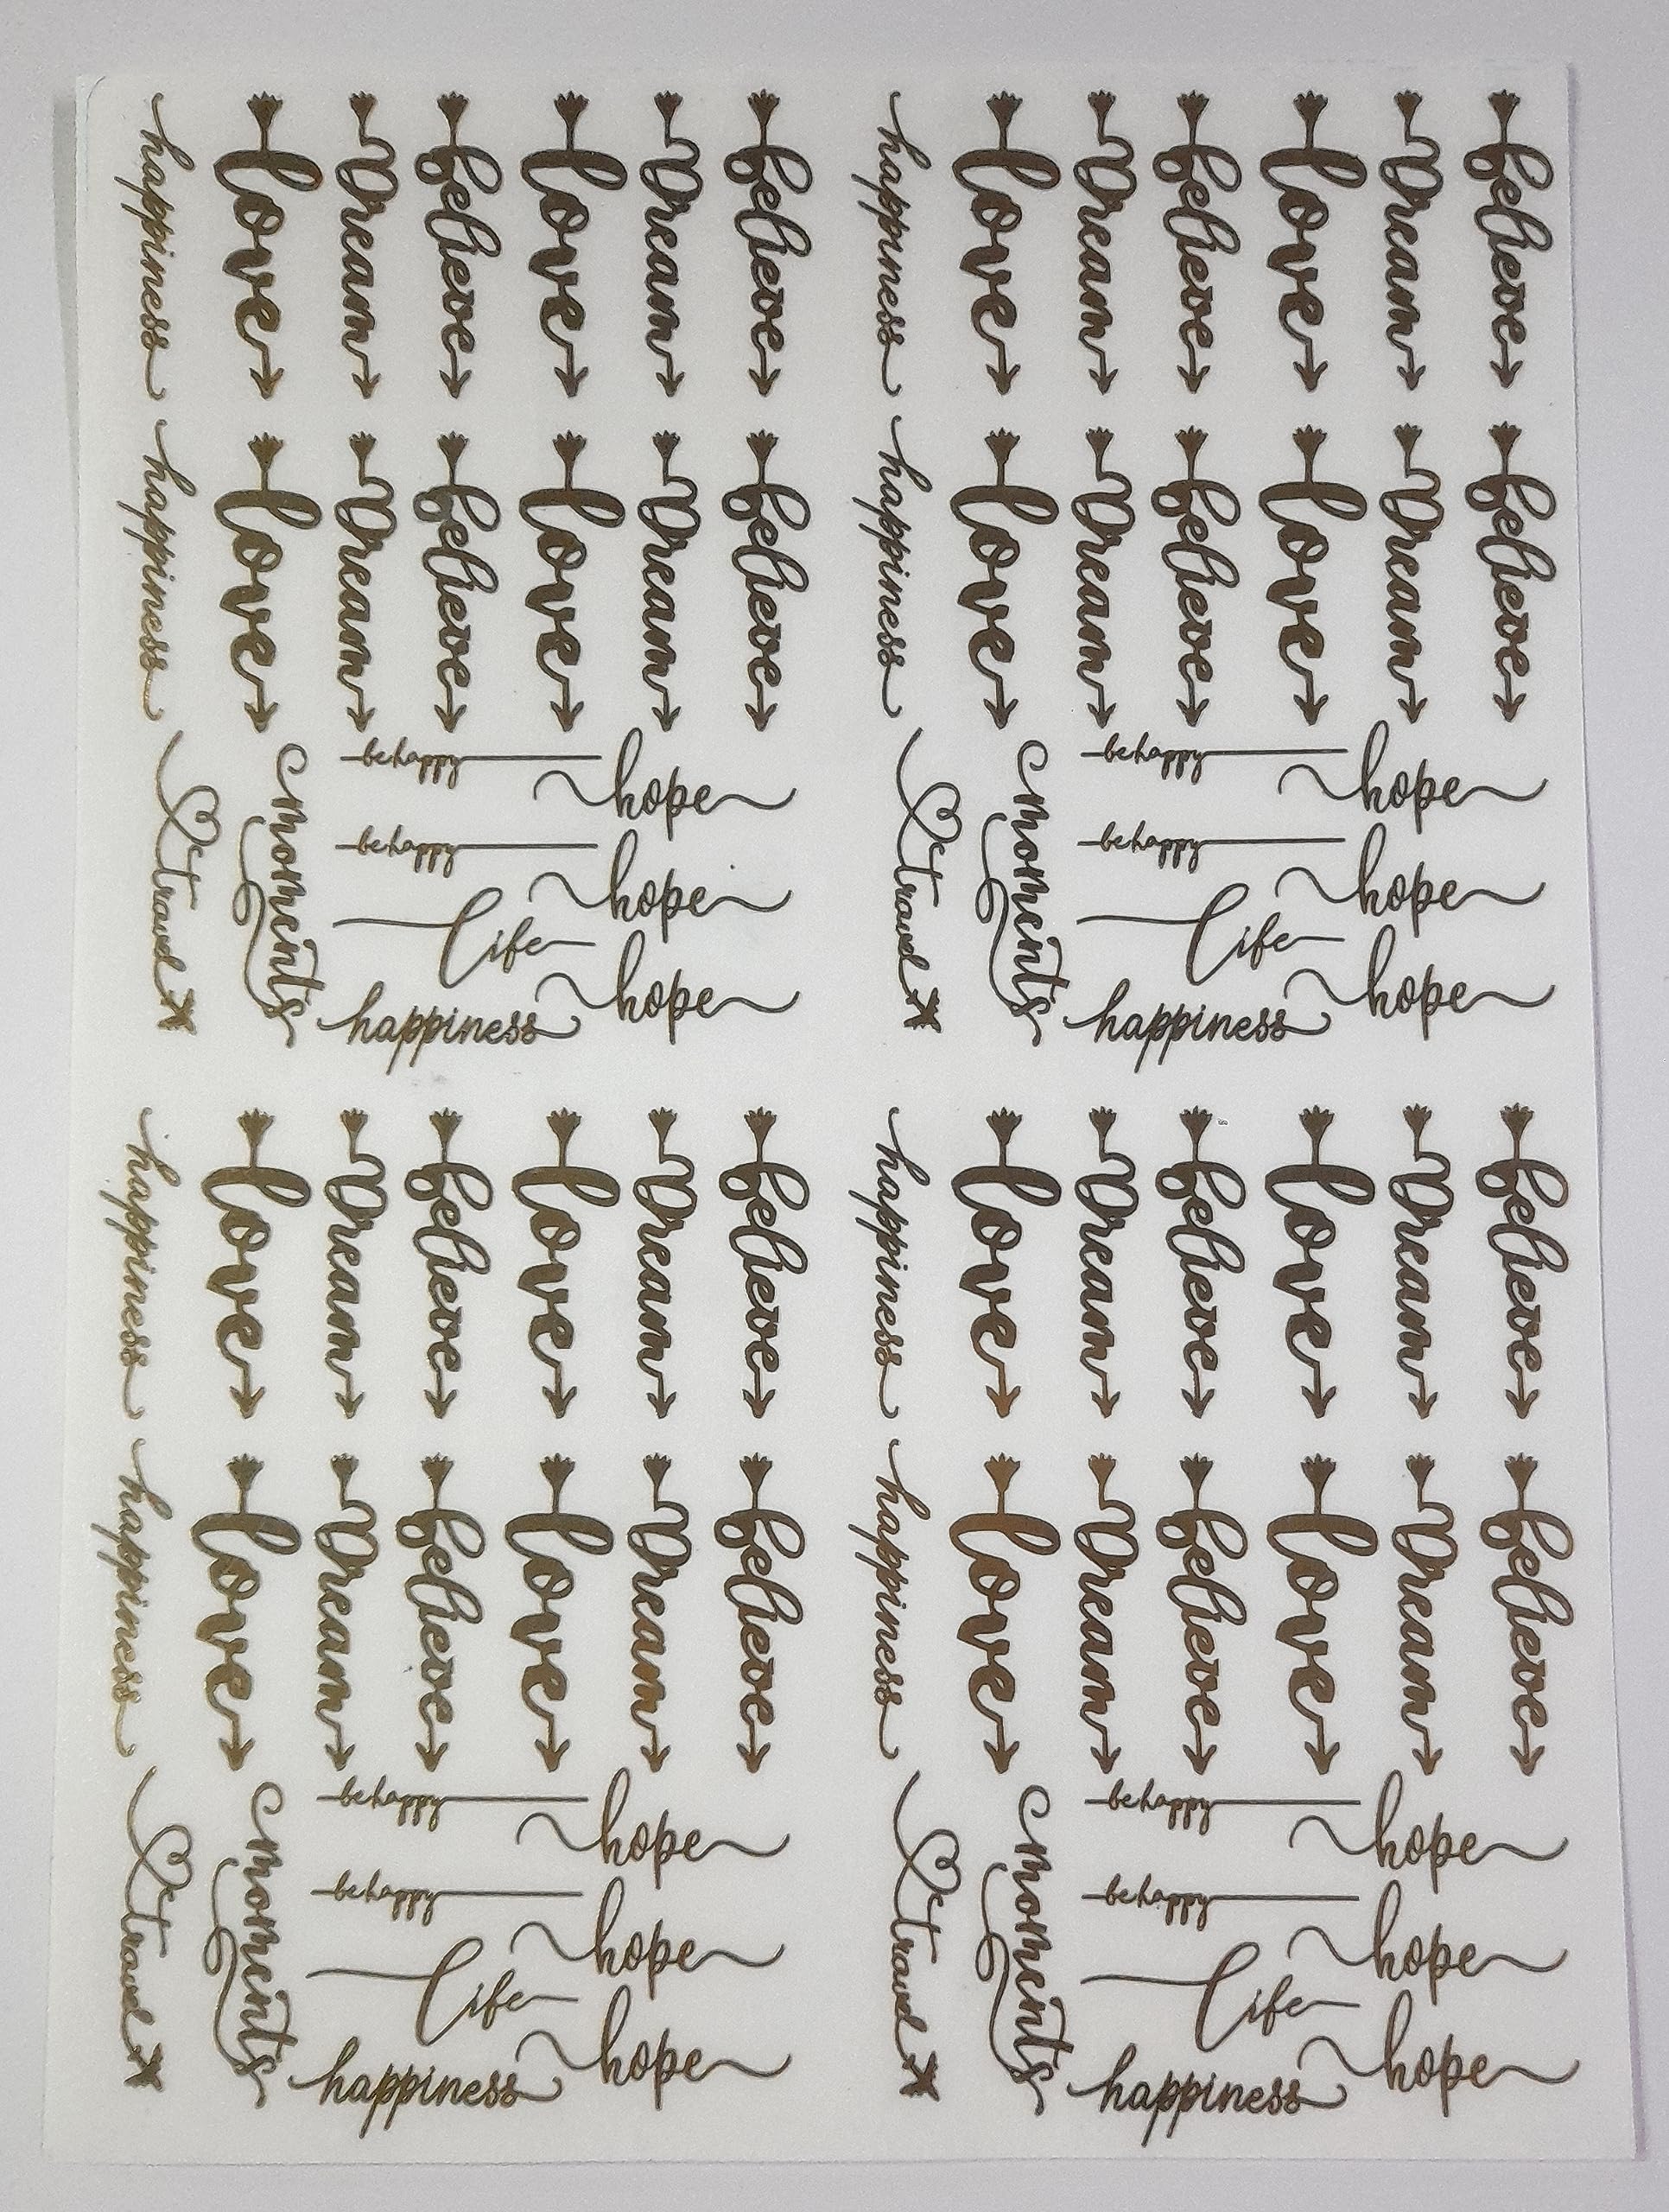 happiness love Dream believe love Dream believe
happiness love Dream believe love Dream believe
happiness love Dream believe love Dream believe
happiness love Dream believe love Dream believe
travel
moments
be happy
hope
be happy
hope
life
hope
happiness
travel
moments
be happy
hope
be happy
hope
life
hope
happiness
happiness love Dream believe love Dream believe
happiness love Dream believe love Dream believe
happiness love Dream believe love Dream believe
happiness love Dream believe love Dream believe
travel
moments
be happy
hope
be happy
hope
life
hope
happiness
travel
moments
be happy
hope
be happy
hope
life
hope
happiness